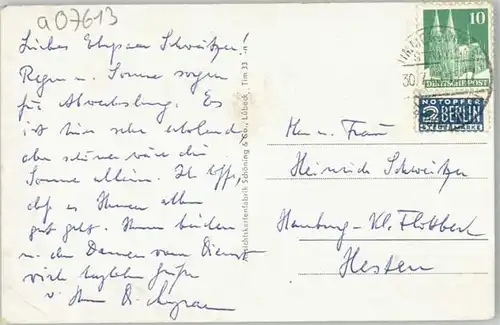 a07613
Liebes Ehepaar Schweitzer!
Regen u. Sonne sorgen
für Abwechslung. Es
ist hier sehr erholend
aber schöner wäre die
Sonne allein. Ich hoffe,
daß es Ihnen allen
gut geht. Ihnen beiden
u. den Damen vom Dienst
viele
Ansichtskartenfabrik Schöning & Co., Lübeck, Tim 33
10
DEUTSCHE POST
30.7
NOTOPFER
2 BERLIN
STEUERMARKE
Herr u. Frau
Heinrich Schweitzer
Hamburg-Kl. Flottbek
Hesten